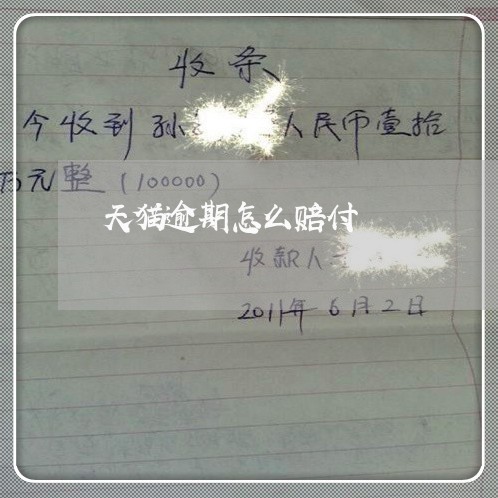 收条
今收到孙 人民币壹拾
万元整（100000）
天猫逾期怎么赔付
收款人
2011年6月2日